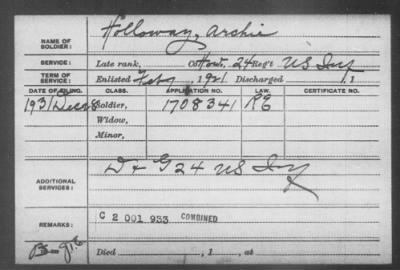 NAME OF SOLDIER: Holloway, Archie
SERVICE: Late rank, Co. How. 24 Reg't US Inf
TERM OF SERVICE: Enlisted Feby , 1921 Discharged , 1
DATE OF FILING. CLASS. APPLICATION NO. LAW. CERTIFICATE NO.
1931 Dec 8 Soldier, 1708341 RE
Widow,
Minor,
ADDITIONAL SERVICES: D & G 24 US Inf
REMARKS: C 2 001 933 COMBINED
Died , 1 , at